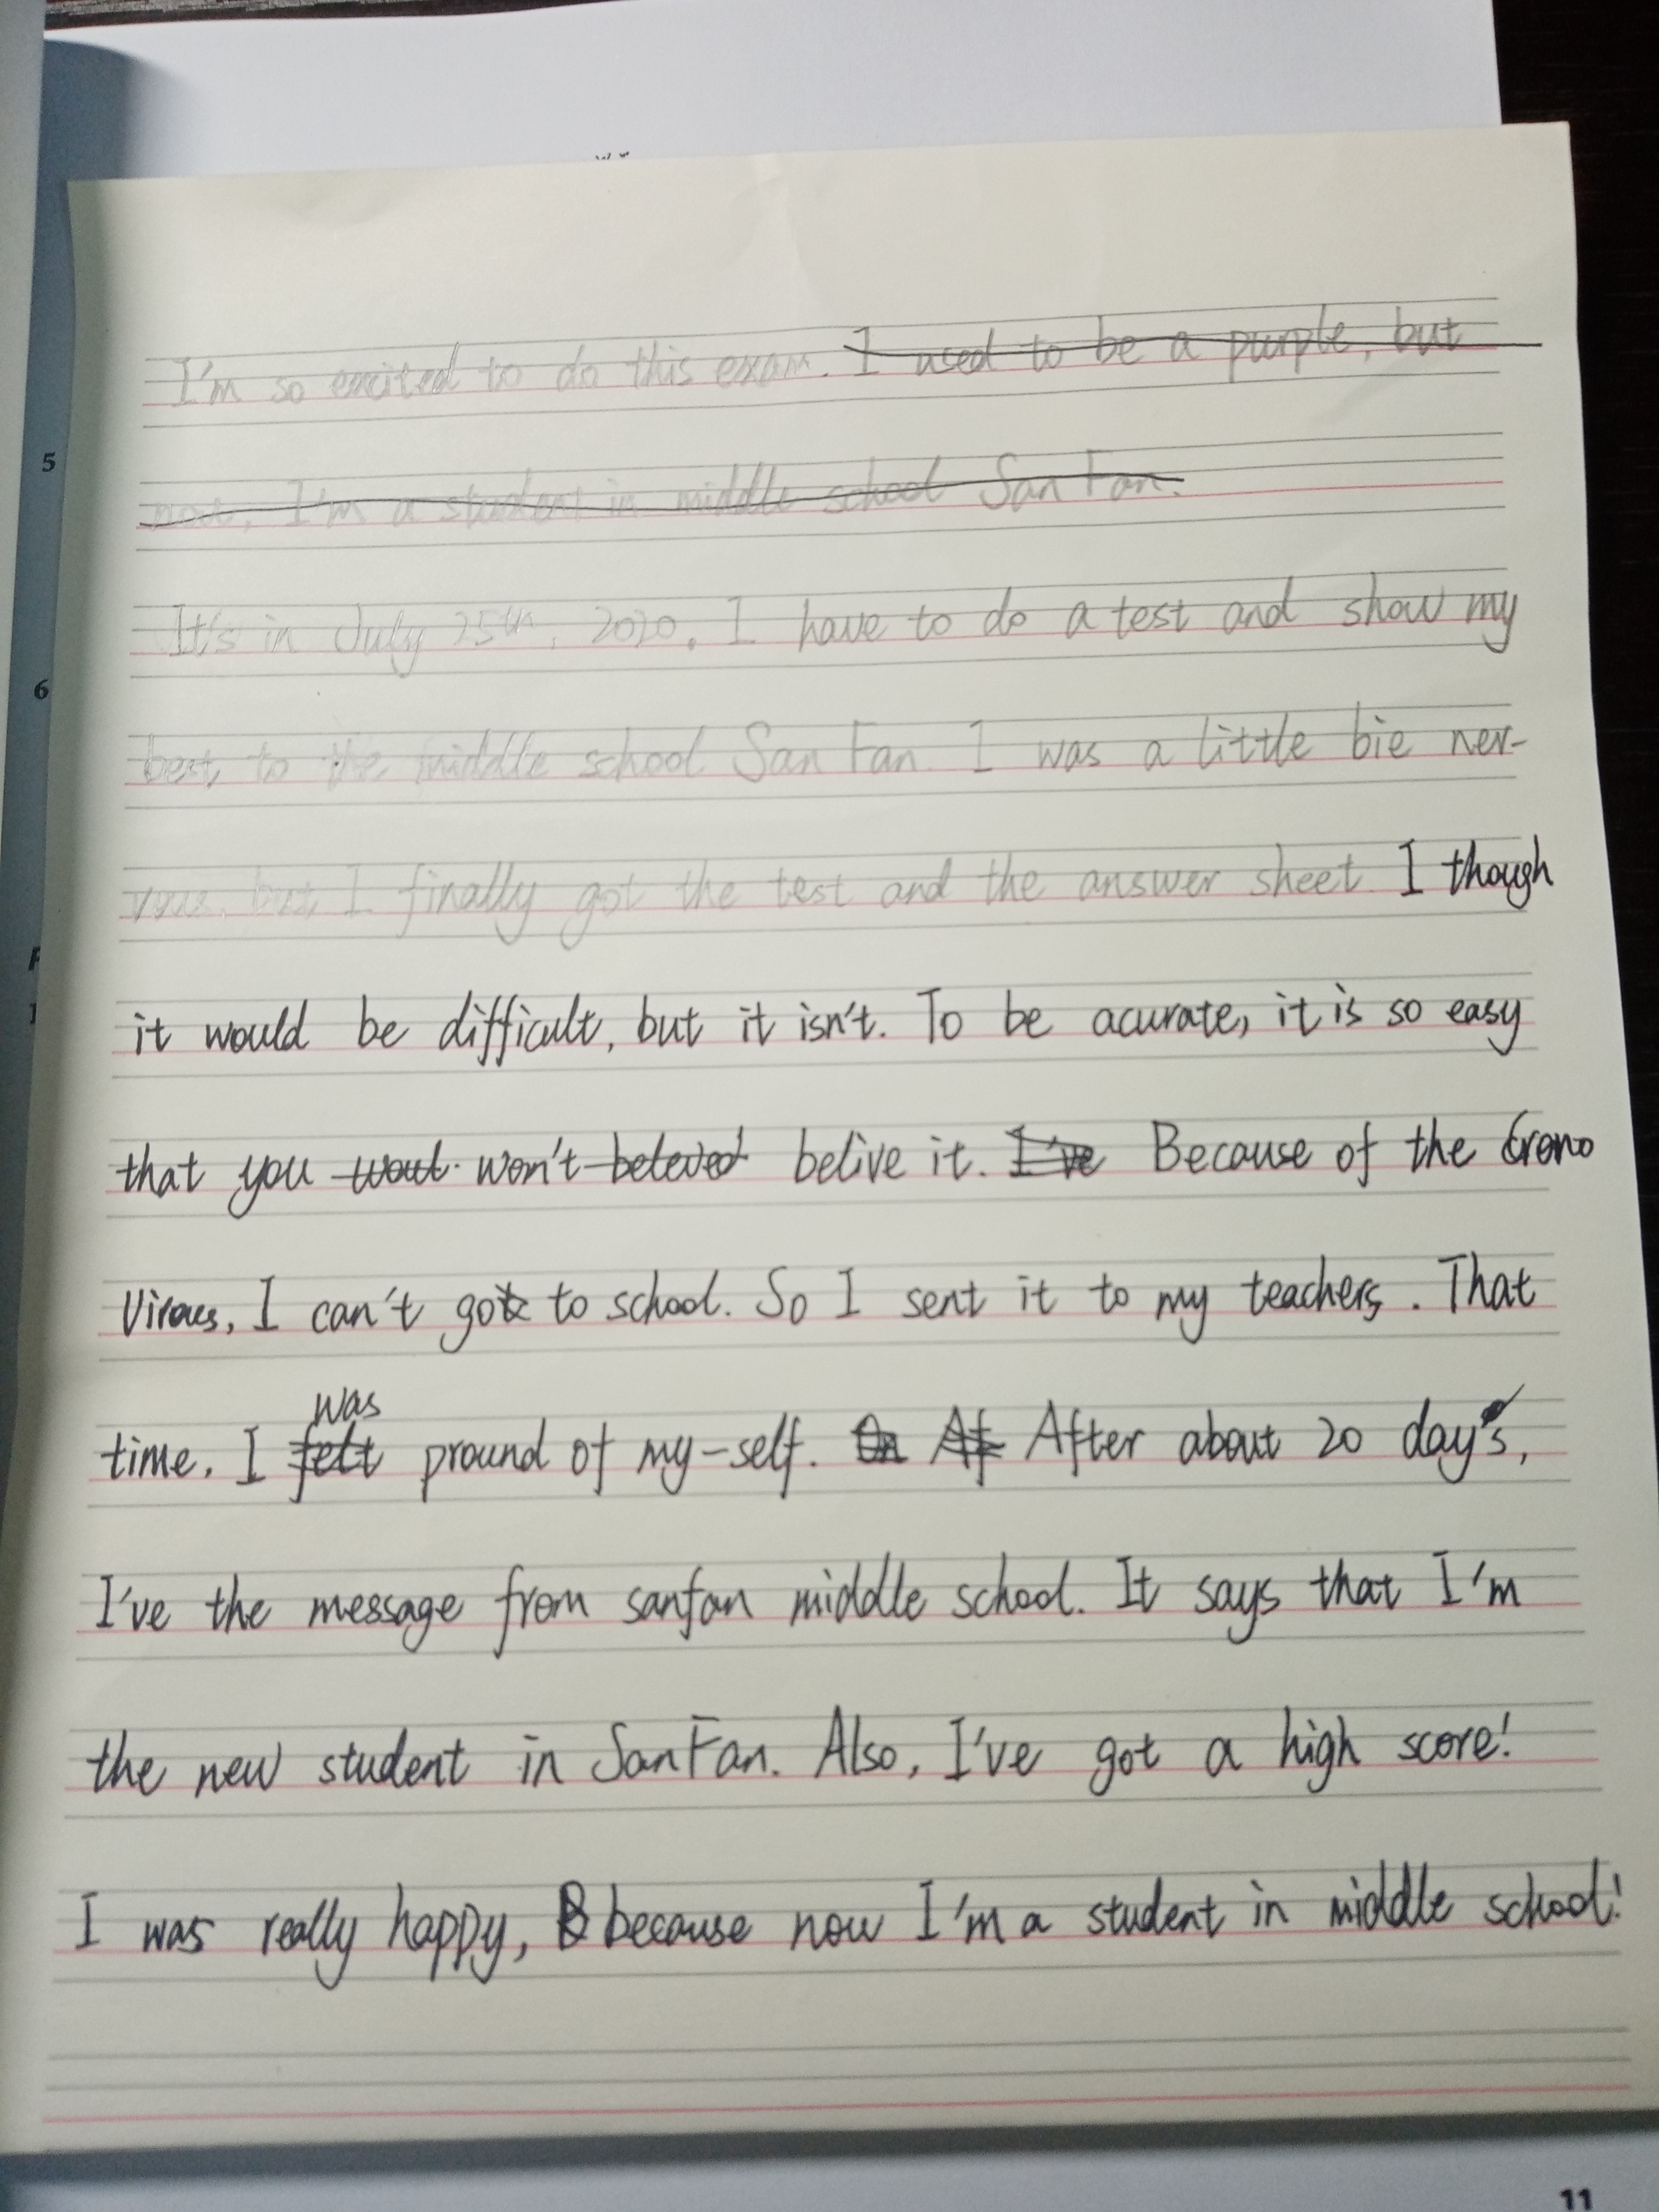 I'm so excited to do this exam. I used to be a purple, but
now, I'm a student in middle school San Fan.
5
It's in July 25th, 2020. I have to do a test and show my
6
best to the middle school San Fan. I was a little bie ner-
vous, but I finally got the test and the answer sheet. I though
it would be difficult, but it isn't. To be acurate, it is so easy
that you wont. won't beleived belive it. I've Because of the Crono
Virous, I can't got to school. So I sent it to my teachers. That
was
time, I felt pround of my-self. On Af After about 20 day's,
I've the message from sanfan middle school. It says that I'm
the new student in SanFan. Also, I've got a high score!
I was really happy, B because now I'm a student in middle school!
11